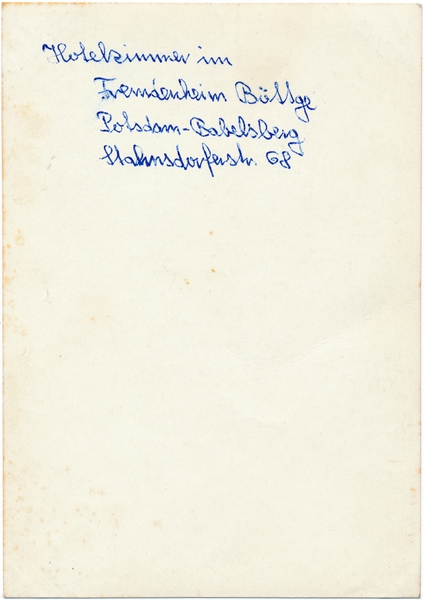 Hotelzimmer im
Fremdenheim Böttge
Potsdam-Babelsberg
Stahnsdorferstr. 68